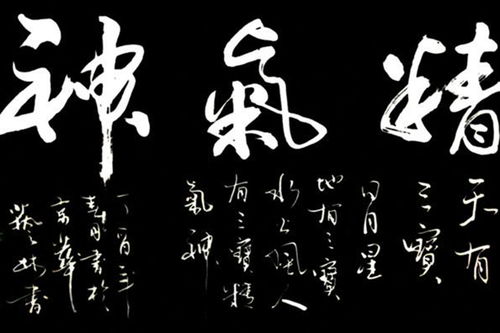 精氣神
天有
三寶
日月星
地有三寶
水火風人
有三寶精
氣神
丁酉年
書於
京華
林書